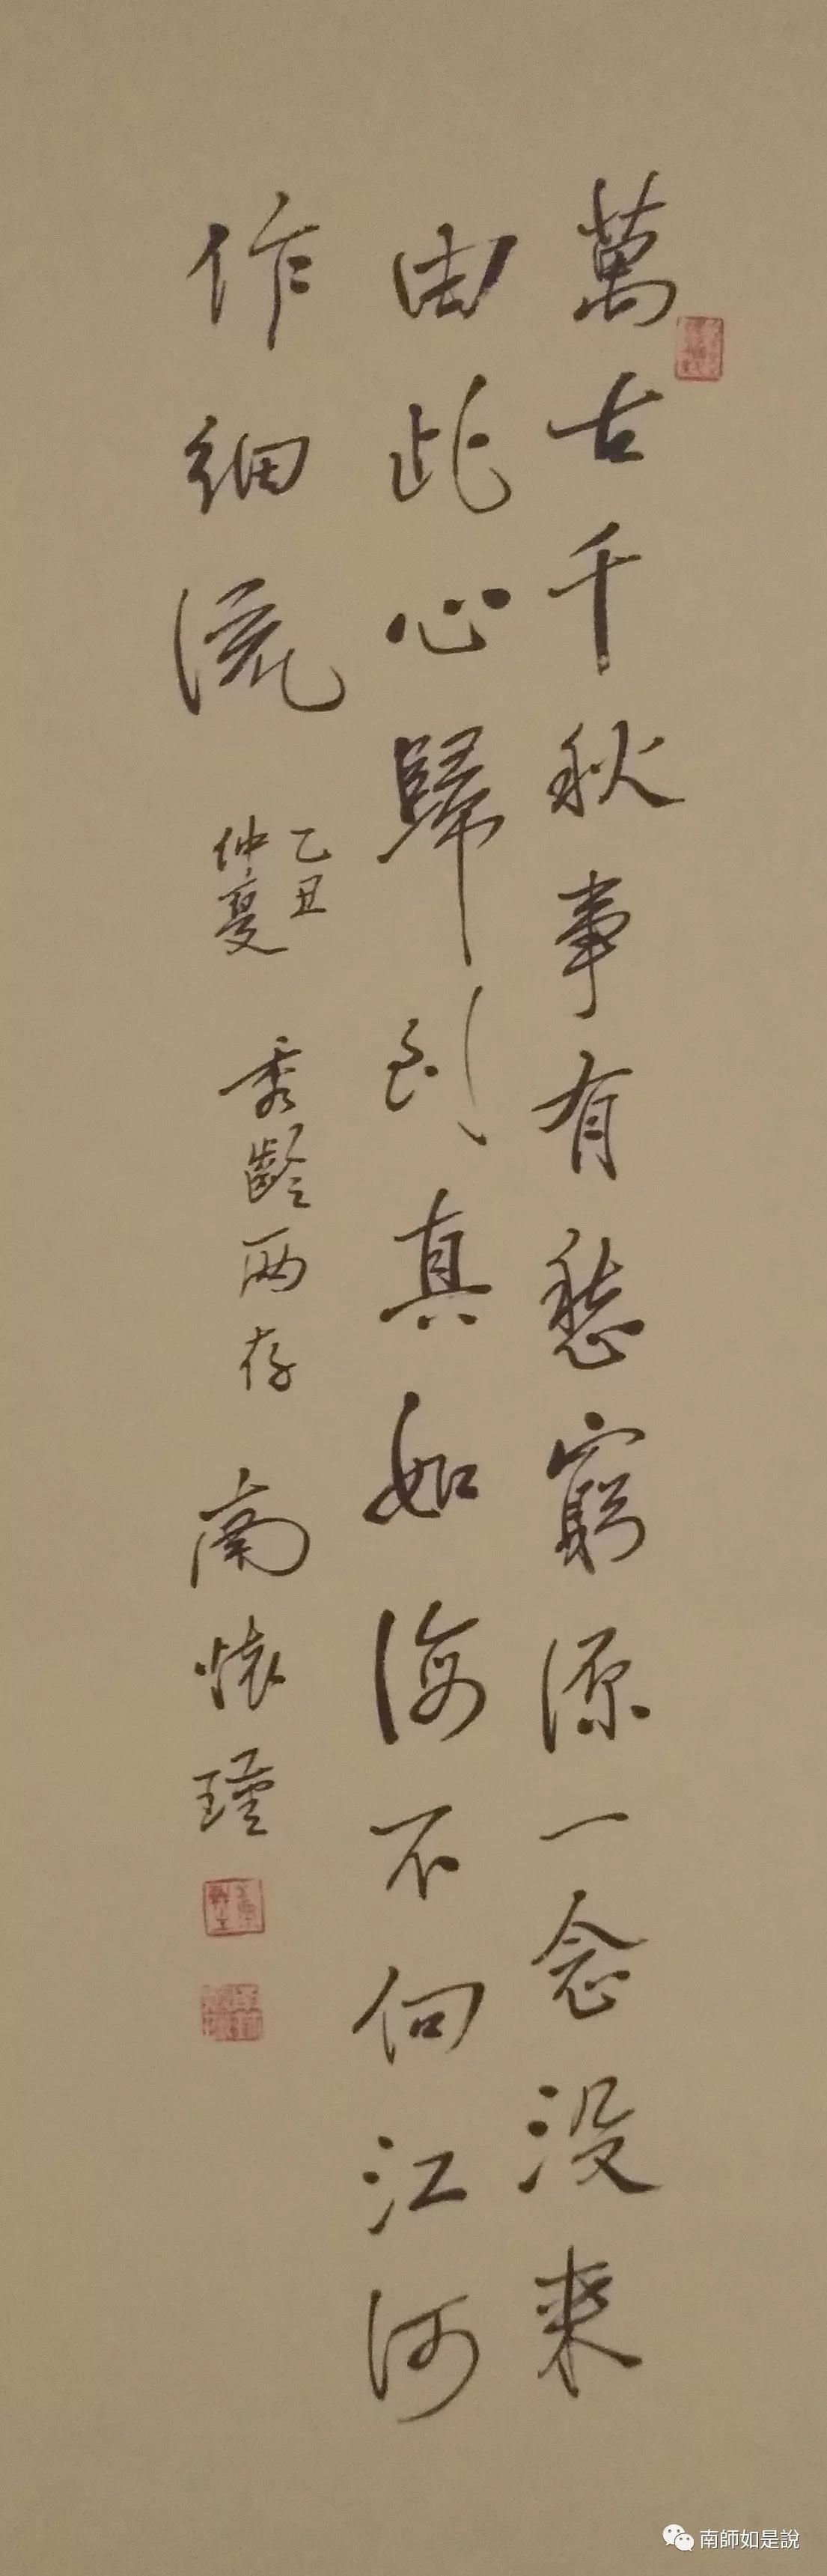 萬古千秋事有愁窮源一念没来
由此心歸到真如海不向江河
作細流
乙丑
仲夏
秀齡兩存
南懷瑾
南師如是說